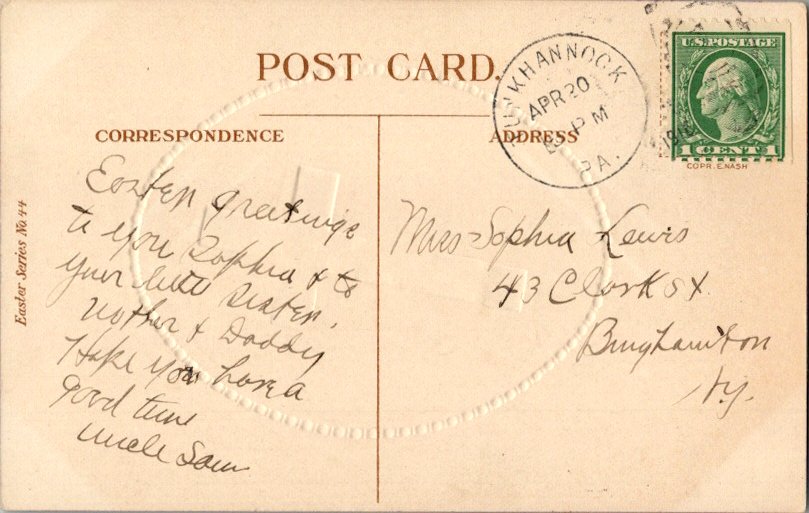 POST CARD.
CORRESPONDENCE
ADDRESS
KHANNOCK
APR 20
PM
PA.
U.S. POSTAGE
1 CENT 1
COPR. E. NASH
Easter Series No. 44
Easter greetings
to you Sophia & to
your little sister,
Mother & Daddy
I hope you have a
good time
Uncle Sam
Miss Sophia Lewis
43 Clark St
Binghamton
N.Y.